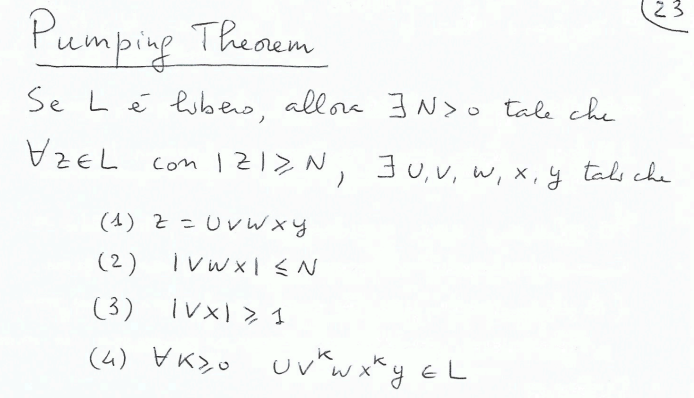 23
Pumping Theorem
Se L é libero, allora ∃ N > 0 tale che
∀ z ∈ L con |z| ⩾ N, ∃ u, v, w, x, y tali che
(1) z = uvwxy
(2) |vwx| ≤ N
(3) |vx| ⩾ 1
(4) ∀ k ⩾ 0 uvᵏwxᵏy ∈ L